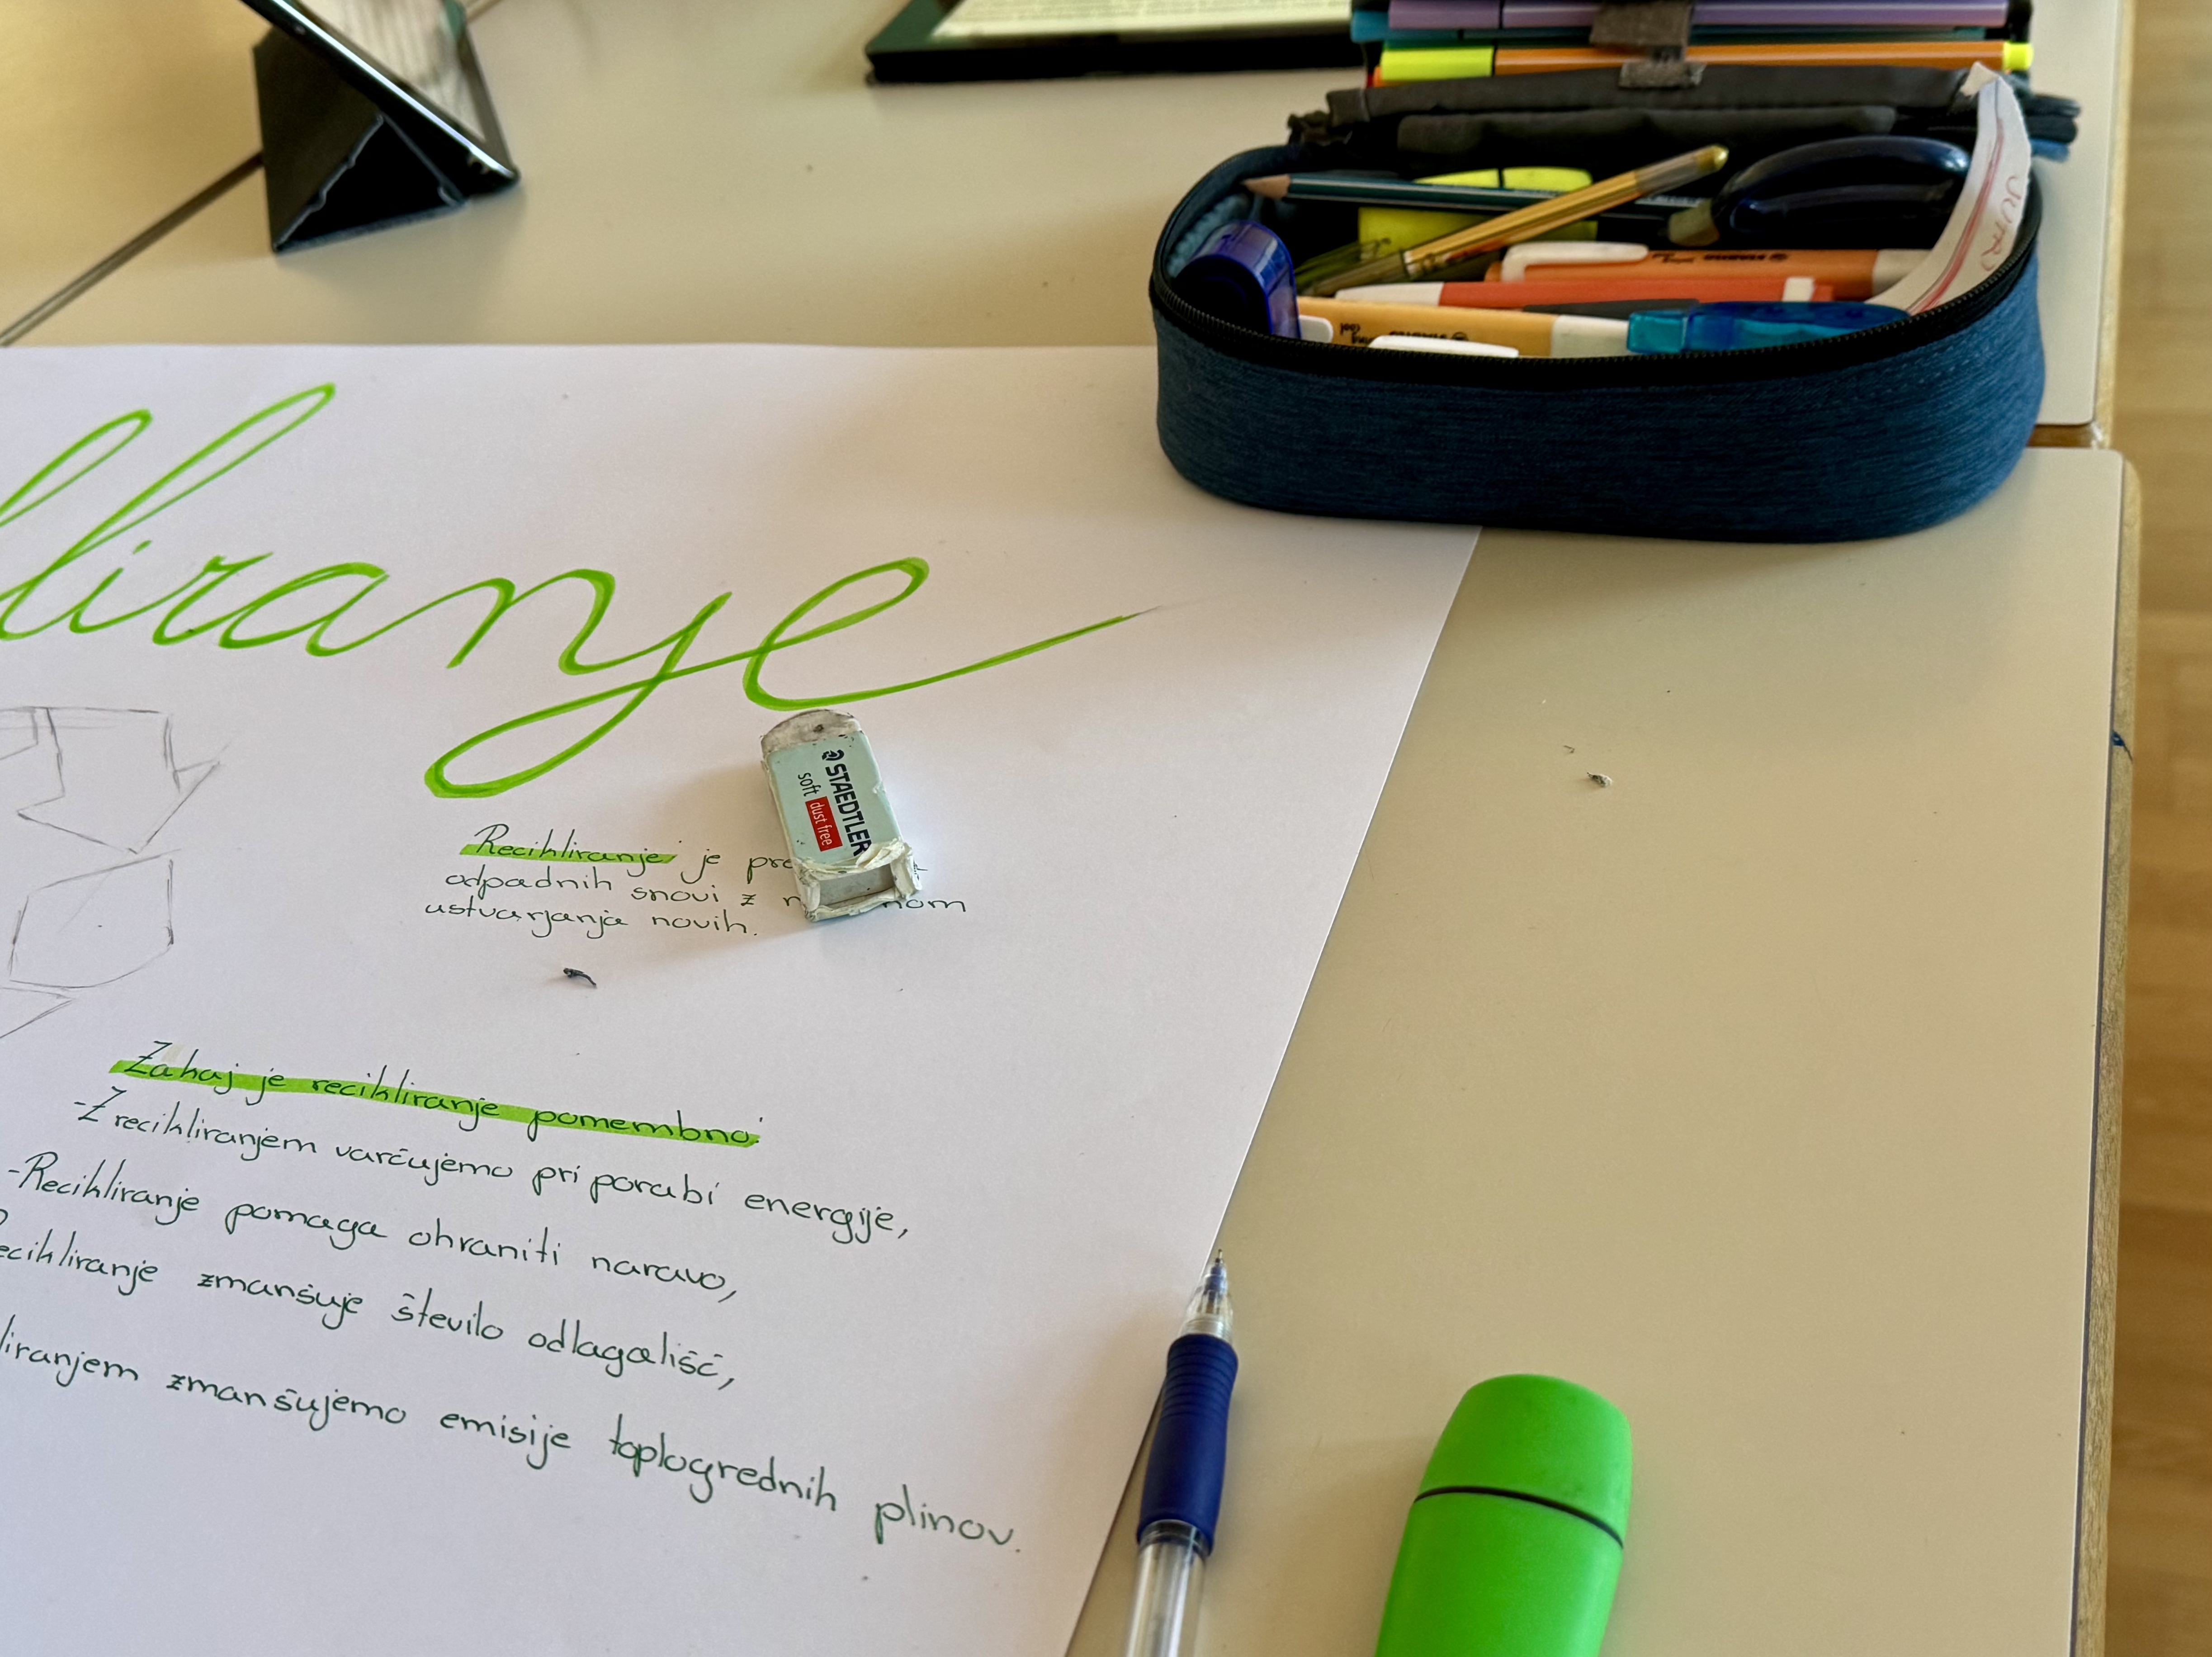 kliranje
STAEDTLER
soft dust free
Recikliranje je
odpadnih snovi z
ustvarjanja novih.
Zakaj je recikliranje pomembno:
-Z recikliranjem varčujemo pri porabi energije,
-Recikliranje pomaga ohraniti naravo,
ecikliranje zmanšuje število odlagališč,
liranjem zmanšujemo emisije toplogrednih plinov.